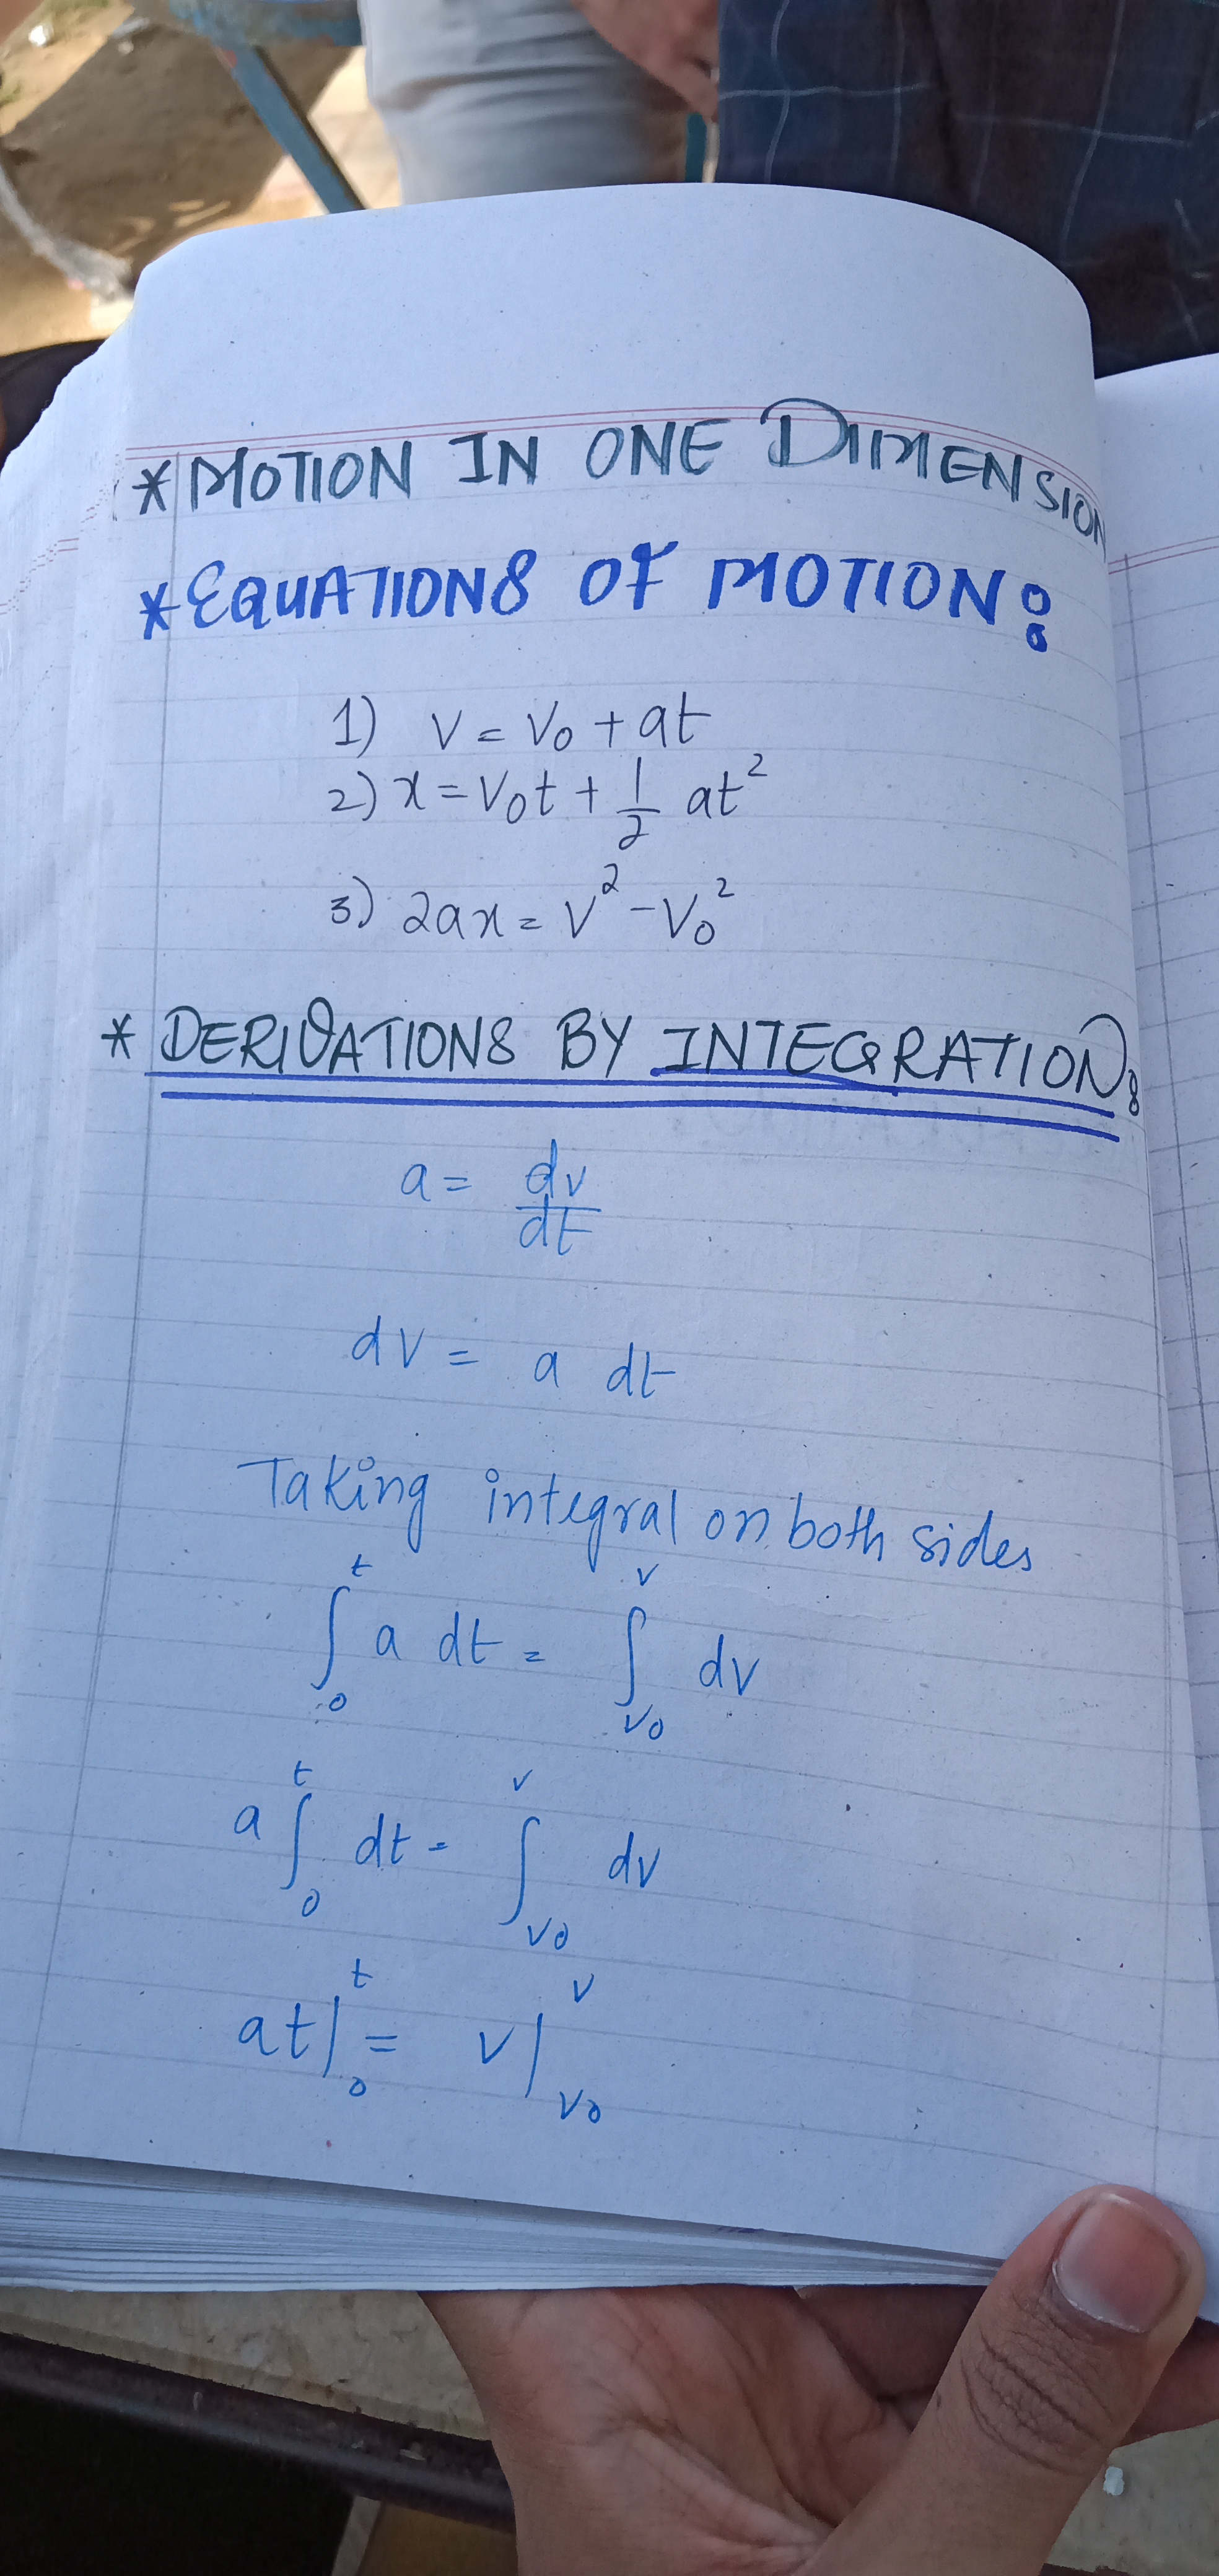 * MOTION IN ONE DIMENSION
* EQUATIONS OF MOTION:
1) V = V₀ + at
2) x = V₀t + 1/2 at²
3) 2ax = V² - V₀²
* DERIVATIONS BY INTEGRATION:
a = dv/dt
dv = a dt
Taking integral on both sides
∫₀ᵗ a dt = ∫_{v₀}^{v} dv
a ∫₀ᵗ dt = ∫_{v₀}^{v} dv
at|₀ᵗ = v|_{v₀}^{v}